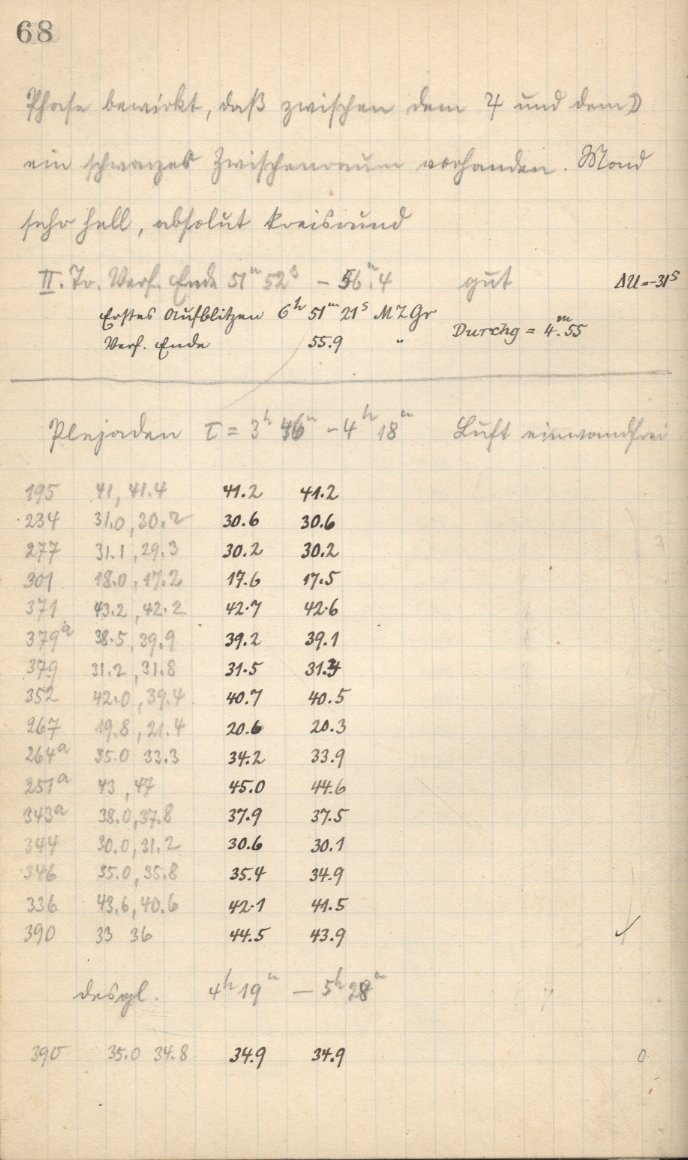 68
Phase bewirkt, daß zwischen dem ♃ und dem ☽
ein schwarzes Zwischenraum vorhanden. Mond
sehr hell, absolut kreisrund
II. Tr. Verf. Ende 51ᵐ 52ˢ – 56ᵐ.4 gut ΔU=-31ˢ
Erstes Aufblitzen 6ʰ 51ᵐ 21ˢ MZGr
Verf. Ende 55.9 " Durchg = 4ᵐ.55
Plejaden τ = 3ʰ 46ᵐ – 4ʰ 18ᵐ Luft einwandfrei
195 41, 41.4 41.2 41.2
234 31.0, 30.2 30.6 30.6
277 31.1, 29.3 30.2 30.2
301 18.0, 17.2 17.6 17.5
371 43.2, 42.2 42.7 42.6
379ᵃ 38.5, 39.9 39.2 39.1
379 31.2, 31.8 31.5 31.4
352 42.0, 39.4 40.7 40.5
267 19.8, 21.4 20.6 20.3
264ᵃ 35.0 33.3 34.2 33.9
251ᵃ 43, 47 45.0 44.6
343ᵃ 38.0, 37.8 37.9 37.5
344 30.0, 31.2 30.6 30.1
346 35.0, 35.8 35.4 34.9
336 43.6, 40.6 42.1 41.5
390 33 36 44.5 43.9 ✓
desgl. 4ʰ 19ᵐ – 5ʰ 28ᵐ "
390 35.0 34.8 34.9 34.9 0